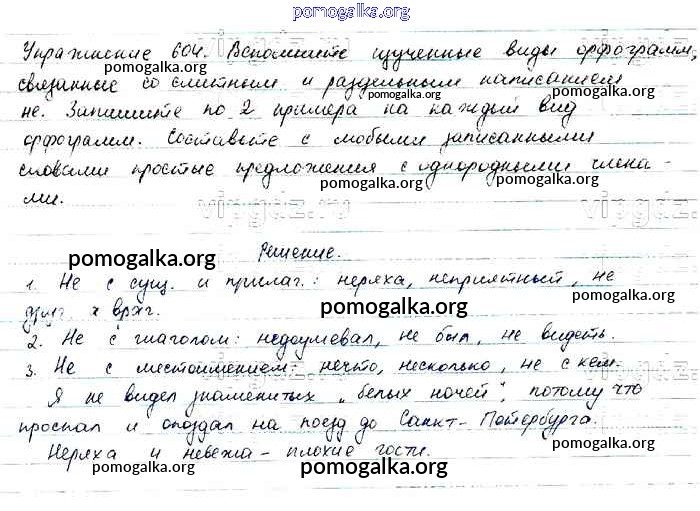 pomogalka.org
Упражнение 604. Вспомните изученные виды орфограмм,
связанные со слитным и раздельным написанием
pomogalka.org
pomogalka.org
не. Запишите по 2 примера на каждый вид
орфограмм. Составьте с любыми записанными
pomogalka.org
словами простые предложения с однородными члена-
pomogalka.org
ми.
vipgdz.ru
Решение.
pomogalka.org
1. Не с сущ. и прилаг.: неряха, неприятный, не
pomogalka.org
друг, а враг.
pomogalka.org
2. Не с глаголом: недоумевал, не был, не видеть.
pomogalka.org
3. Не с местоимением: нечто, несколько, не с кем.
Я не видел знаменитых „белых ночей", потому что
pomogalka.org
проспал и опоздал на поезд до Санкт-Петербурга.
Неряха и невежа - плохие гости.
pomogalka.org
pomogalka.org
pomogalka.org